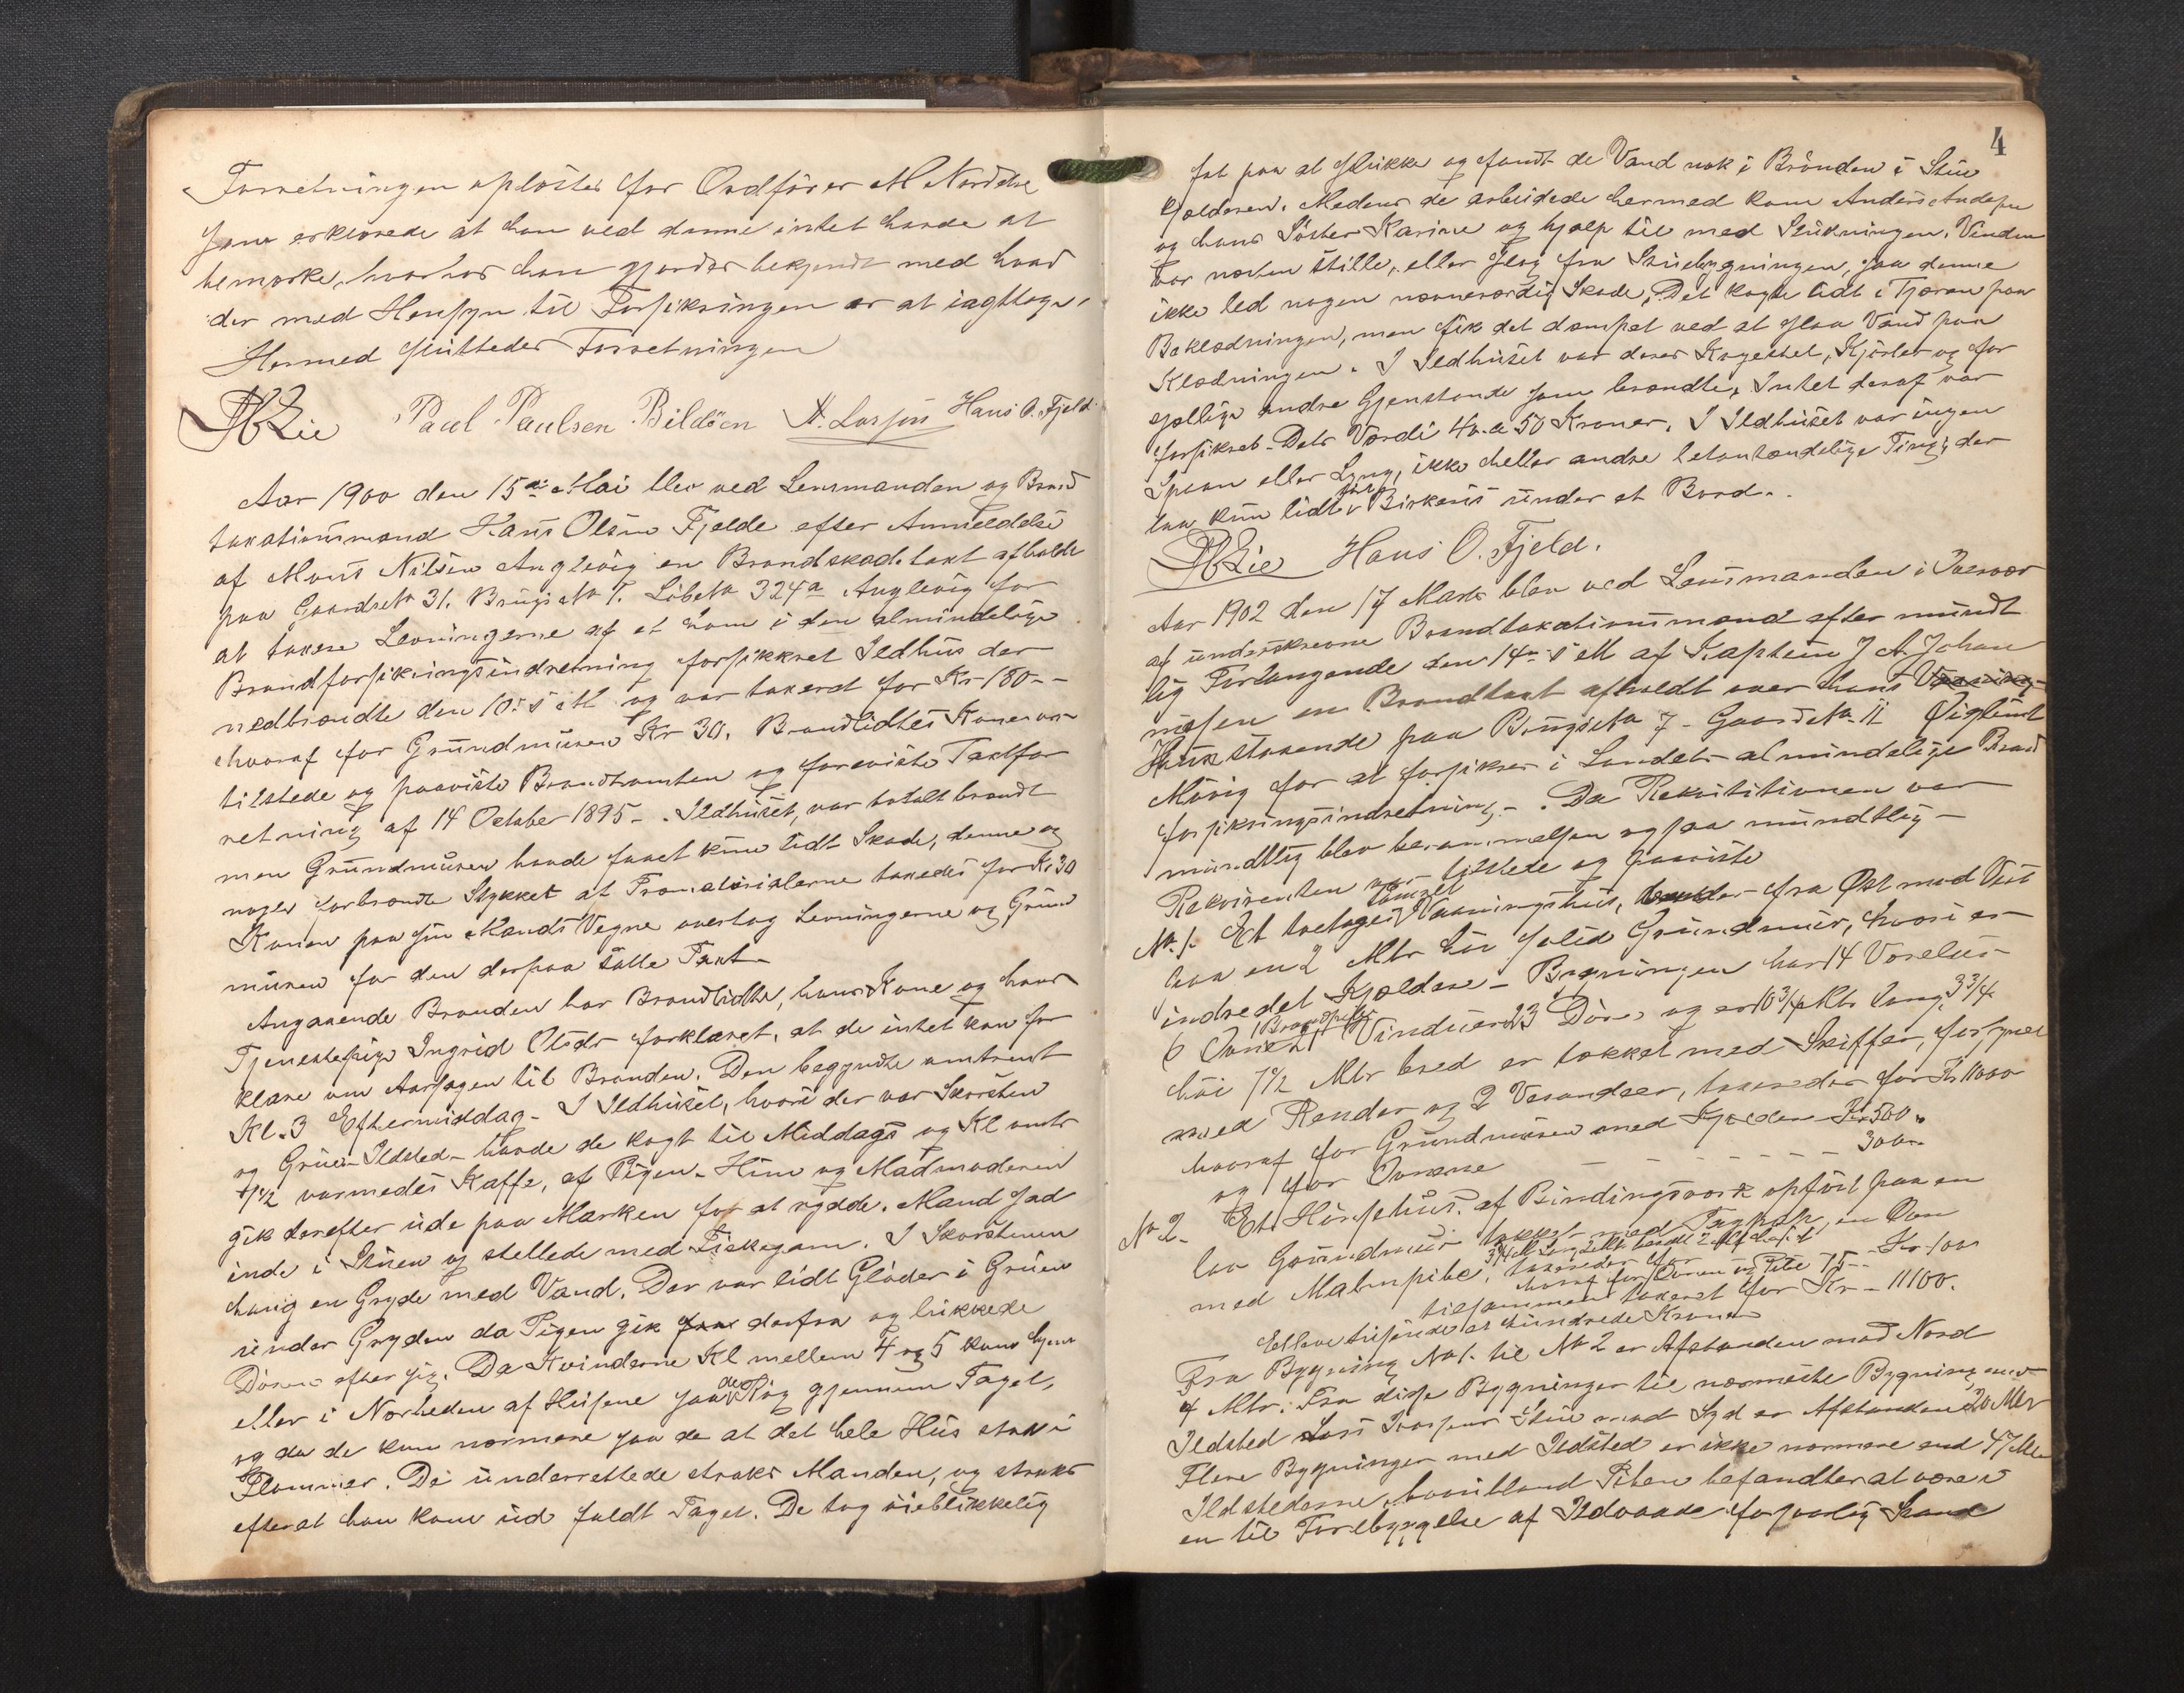 Forretningen oplæstes for Ordfører M Nordvik
som erklærede at han ved denne intet havde at
bemærke, hvorhos han gjordes bekjendt med hvad
der med Hensyn til Forsikringen er at iagttage.
Hermed sluttedes Forretningen
Lie Paul Paulsen Bildöen N. Larsen Hans O. Fjeld.
Aar 1900 den 15de Mai blev ved Lensmanden og Brand
taxationsmand Hans Olsen Fjelde efter Anmeldelse
af Mons Nilsen Anglevig en Brandskadetaxt afholdt
paa Gaardsno 31. Brugsno 7. Løbeno 324a Anglevig for
at taxere Levningerne af et ham i den almindelige
Brandforsikringsindretning forsikkret Ildhus der
nedbrændte den 10de s M og var taxeret for Kr 180 --
hvoraf for Grundmuren Kr 30. Brandlidtes Kone var
tilstede og paaviste Brandtomten og foreviste Taxtfor
retning af 14 October 1895 -. Ildhuset, var totalt brændt
men Grundmuren havde faaet kun lidt Skade, denne og
nogle forbrændte Stykker af Træmaterialerne taxedes for Kr 30
Konen paa sin Mands Vegne overtog Levningerne og Grund
muren for den derpaa satte Taxt -
Angaaende Branden har Brandlidte, hans Kone og hans
Tjenestepige Ingrid Olsdr forklaret, at de intet kan for
klare om Aarsagen til Branden. Den begyndte omtrent
Kl. 3 Eftermiddag - I Ildhuset, hvori der var Skorsten
og Grue - Ildsted - havde de kogt til Middags og Kl omtr
1½ varmedes Kaffe, af Pigen - Hun og Madmoderen
gik derefter ude paa Marken for at rydde. Mand sad
inde i Stuen og stellede med Fiskegarn. I Skorstenen
hang en Gryde med Vand. Der var lidt Gløder i Gruen
under Gryden da Pigen gik derfra og lukkede
Døren efter sig. Da Kvinderne Kl mellem 4 og 5 kom hjem
eller i Nærheden af Husene saa de Røg gjennem Taget,
og da de kom nærmere saa de at det hele Hus stod i
Flammer. De underrettede straks Manden, og straks
efter at han kom ud faldt Taget. De tog øieblikkelig
4
fat paa at slukke og fandt de Vand nok i Brønden i Stue
kjælderen. Medens de arbeidede hermed kom Anders Andersen
og hans Søster Karine og hjalp til med Slukningen. Vinden
var næsten stille, eller slog fra Stuebygningen, saa denne
ikke led nogen nævneværdig Skade. Det kogte lidt i Tjæren paa
Beklædningen, men fik det dæmpet ved at slaa Vand paa
Klædningen. I Ildhuset var deres Kogekjel, Kjørler og for
sjellige andre Gjenstande som brændte. Intet deraf var
forsikret - Dets Værdi 40 a 50 Kroner. I Ildhuset var ingen
Spaan eller Lyng, ikke heller andre letantændelige Ting, der
laa kun lidt tør Birkeris under et Bord.
Lie Hans O. Fjeld.
Aar 1902 den 17 Marts blev ved Lensmanden i
af underskrevne Brandtaxationsmænd efter mundt
lig Forlangende den 14de s M af Kaptein J A Johan
nesen en Brandtaxt afholdt over hans
Huse staaende paa Brugsno 7 - Gaardsno 11
Møvig for at forsikres i Landets almindelige Brand
forsikringsindretning -. Da Rekvisitionen var
mundtlig blev berammelsen ogsaa mundtlig -
Rekvirenten var tilstede og paaviste
No. 1. Et toetages tømret Vaaningshus, fra Øst mod Vest
paa en 2 Mtr høi solid Grundmur, hvori er
indredet Kjældere - Bygningen har 14 Værelser
6 Ovne 2 Brandpiber 21 Vinduer 23 Døre og er 10¾ Mtr lang, 3¾
høi 7½ Mtr bred er tækket med Skiffer, forsynet
med Render og 2 Verandaer, taxeredes for Kr 11000
hvoraf for Grundmuren med Kjælder Kr 500 "
og for Ovnene - - - - - - - 300 "
No 2. Et Hønsehus af Bindingsværk opført paa en
lav Grundmur tækket med Tagpap, en Ovn
med Malmpibe, taxeredes for Kr 100
hvoraf for Ovnen og Pibe 75 -
tilsammen taxeret for Kr - 11100.
Ellevetusinde et hundrede Kroner
Fra Bygning No 1. til No 2 er Afstanden mod Nord
4 Mtr. Fra disse Bygninger til nærmeste Bygning med
Ildsted Lars Stue mod Syd er Afstanden 20 Mtr
Flere Bygninger med Ildsted er ikke nærmere end 47 Mtr
Ildstederne, hvoriblandt Piben befandtes at være i
en til Forebyggelse af Ildvaade forsvarlig Stand